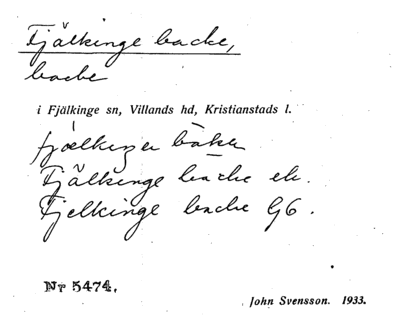 Fjälkinge backe,
backe
i Fjälkinge sn, Villands hd, Kristianstads l.
Fjälkinge backe ek.
Fjelkinge backe G6.
Nr 5474.
John Svensson. 1933.